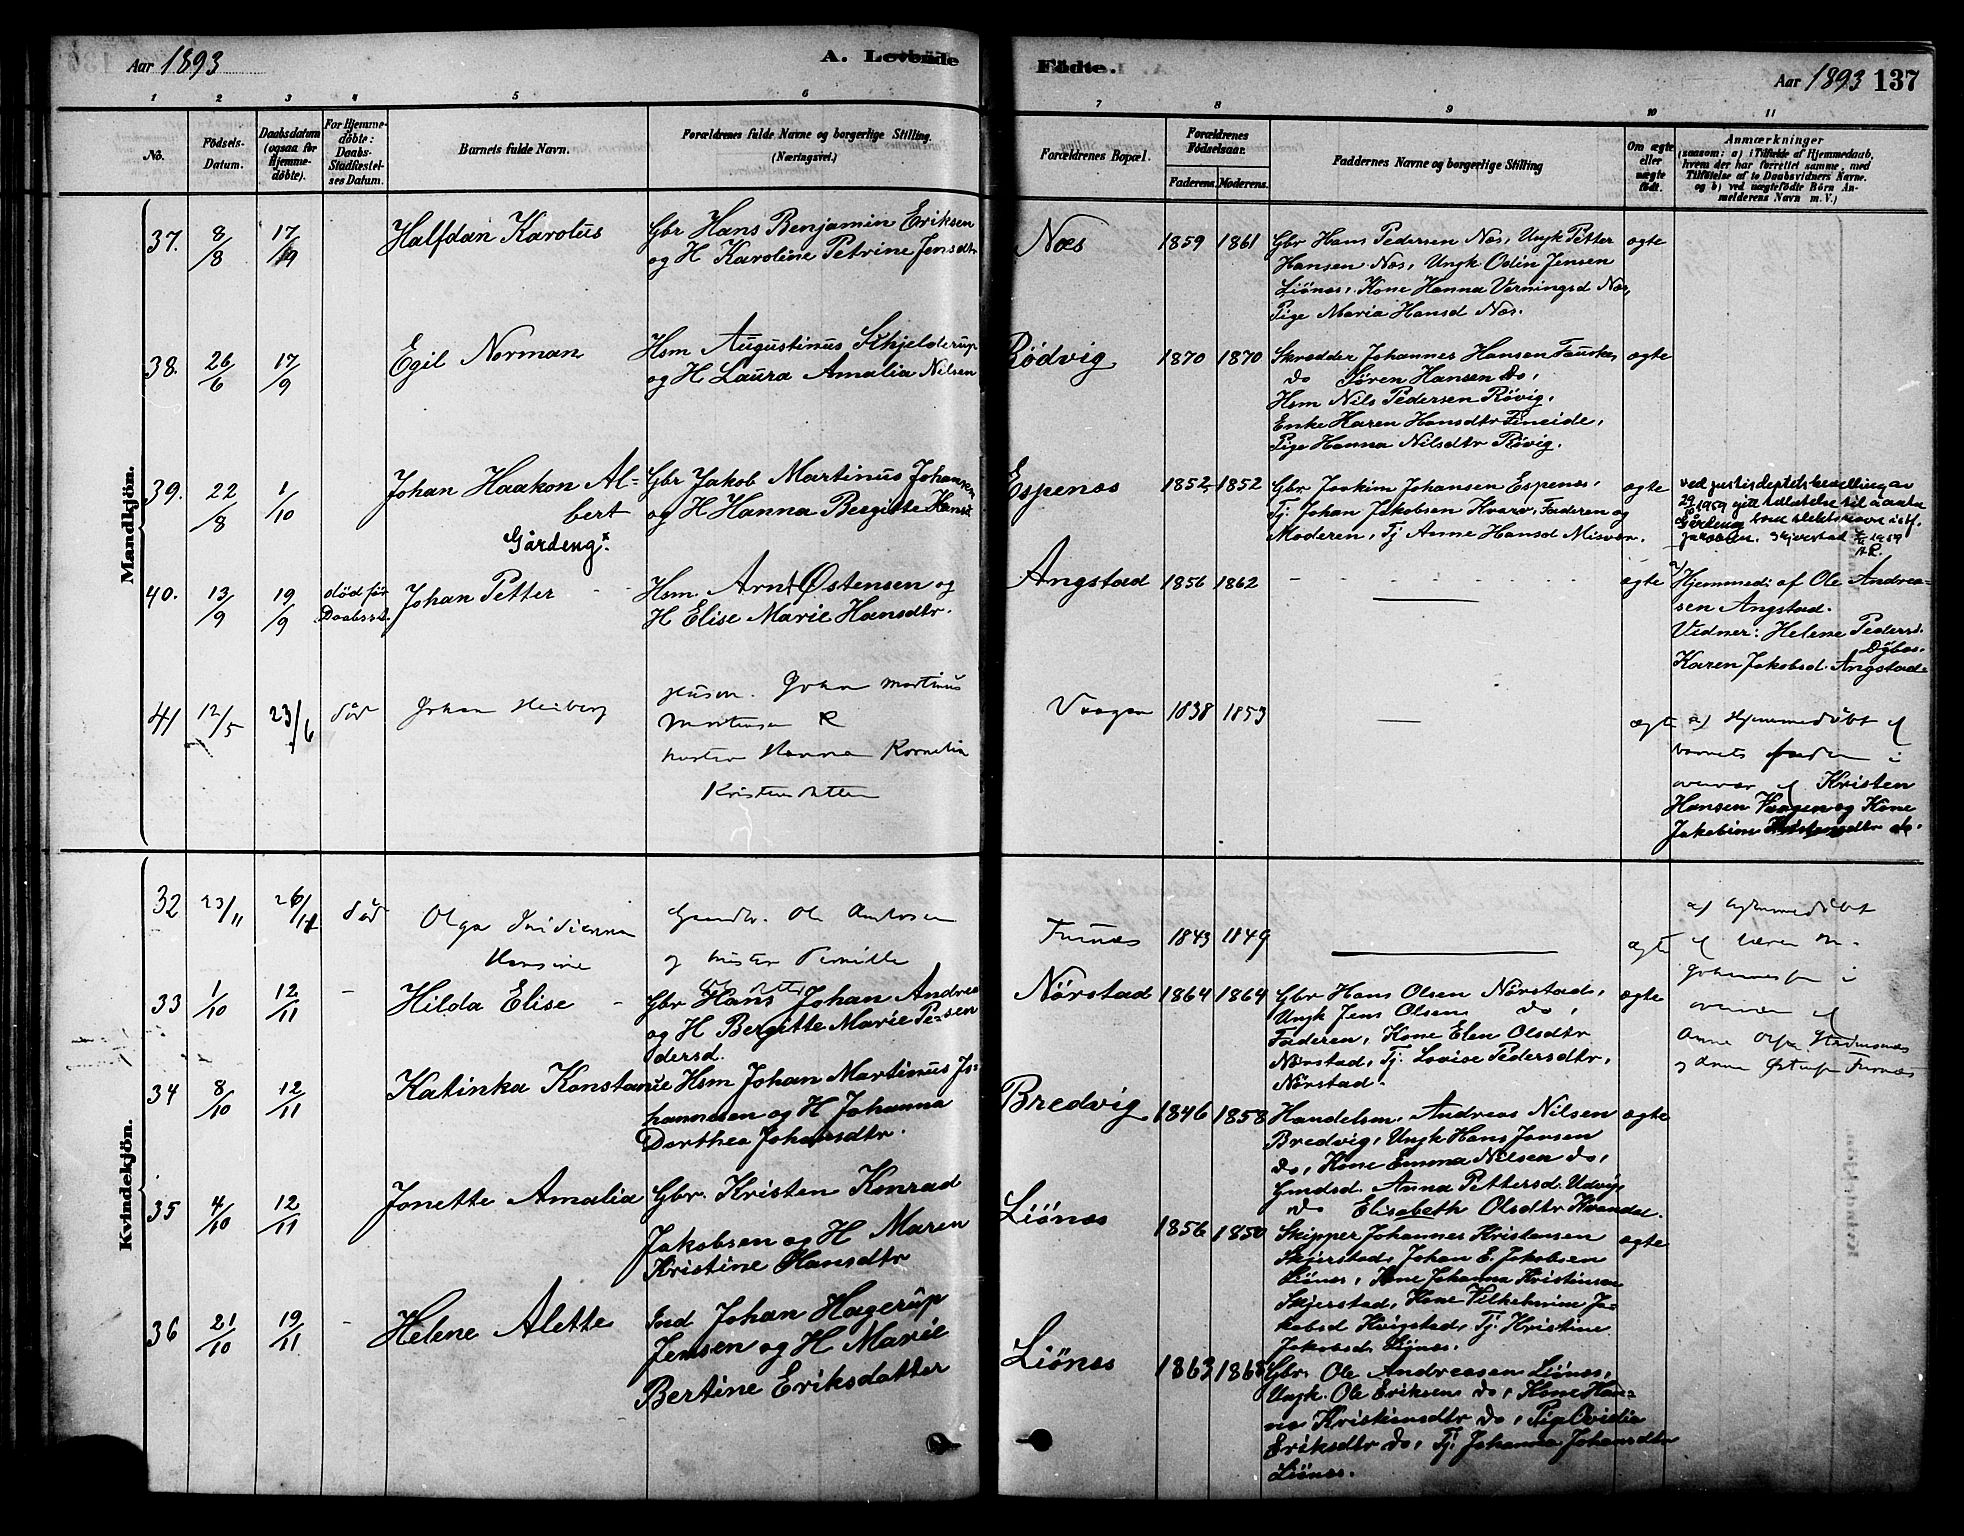 Aar 1893
A. Levende
Fødte.
Aar 1893 137
1 2 3 4 5 6 7 8 9 10 11
No.
Fødsels-
Datum.
Daabsdatum
(ogsaa for
Hjemme-
døbte).
For Hjemme-
døbte:
Daabs-
Stadfæstel-
ses Datum.
Barnets fulde Navn.
Forældrenes fulde Navne og borgerlige Stilling.
(Næringsvei.)
Forældrenes Bopæl.
Forældrenes
Fødselsaar.
Faderens. Moderens.
Faddernes Navne og borgerlige Stilling
Om ægte
eller
uægte
født.
Anmærkninger
(saasom: a) i Tilfælde af Hjemmedaab,
hvem der har forrettet samme, med
Tilføielse af to Daabsvidners Navne.
og b) ved uægtefødte Børn An-
melderens Navn m. V.)
Mandkjön.
37. 8/8 17/9 Halfdan Karolus
Gbr Hans Benjamin Eriksen
og H Karoline Petrine Jensdtr
Næs 1859 1861
Gbr Hans Pedersen Næs, Ungk Petter
Hansen Næs, Ungk Odin Jensen
Liönæs, Kone Hanna Verningsd Næs,
Pige Maria Hansd Næs.
ægte
38. 26/6 17/9 Egil Norman
Hsm Augustinus Schjelderup
og H Laura Amalia Nilsen
Rödvig 1870 1870
Skrædder Johannes Hansen Fauske,
do Sören Hansen do,
Hsm Nils Pedersen Rövig,
Enke Karen Hansdtr Fineide,
Pige Hanna Nilsdtr Rövig.
ægte
39. 22/8 1/10 Johan Haakon Al-
bert
Gårdeng x.
Gbr Jakob Martinus Johansen
og H Hanna Bergitte Hansd
Espenæs 1852 1852
Gbr Joakim Johansen Espenæs,
Tj. Johan Jakobsen Kvarv, Faderen og
Moderen, Tj Anne Hansd Misvær.
ægte
ved justisdeptets bevilling av
29/10 1959 gitt tillatelse til å anta
Gårdeng som slektsnavn istf.
Skjerstad 1959
A.R.
40. 13/9 19/9 död för
Daabsst. Johan Petter
Hsm Arnt Østensen og
H Elise Marie Hansdtr.
Angstad 1856 1862
ægte
a) Hjemmed: af Ole Andrea-
sen Angstad.
Vidner: Helene Pedersd.
Karen Jakobsd. Angstad.
41 12/5 23/6 död Johan Heiberg
Husm. Johan Martinus
Mortensen &
hustru Hanna Kornelia
Kristensdatter
Vaagan 1838 1853
ægte
a) Hjemmedöbt af
barnets fader i
overvær af Kristen
Hansen Vaagen og Kone
Jakobine Kristensdtr do.
Kvindekjön.
32 23/11 26/11 död
Olga
Hansine
Gaardbr. Ole
og hustru Pernille
Furnæs 1843 1849
ægte
a) hjemmedöbt
af lærer M.
i
overvær af
Anne
og Anna Furnæs
33 1/10 12/11 - Hilda Elise
Gbr Hans Johan Andrea
sen
og H Bergitte Marie Pe-
dersd.
Nörstad 1864 1864
Gbr Hans Olsen Nörstad,
Ungk Jens Olsen do,
Faderen, Kone Elen Olsdtr
Nörstad, Tj. Lovise Pedersdtr,
Nörstad.
ægte
34 8/10 12/11 Katinka Konstance
Hsm Johan Martinus Jo-
hannesen og H Johanna
Dorthea Johansdtr.
Bredvig 1846 1858
Handelsm. Andreas Nilsen
Bredvig, Ungk Hans Jensen
do, Kone Emma Nilsen do,
Gmdsd. Anna Pettersd. Udvig,
do Elisabeth Olsdtr Kvandal.
ægte
35 4/10 12/11 Jonette Amalia
Gbr. Kristen Konrad
Jakobsen og H Maren
Kristine Hansdtr
Liönæs 1856 1850
Skipper Johannes Kristensen
Skjerstad, Johan E. Jakobsen
Liönæs, Kone Johanna Kristensen
Skjerstad, Kone Vilhelmine Ja-
kobsd Kvigstad, Tj. Kristine
Jakobsd. Liönæs.
ægte
36 21/10 19/11 - Helene Alette
Ind Johan Hagerup
Jensen og H Marie
Bertine Eriksdatter
Liönæs 1863 1868
Gbr. Ole Andreasen Liönæs,
Ungk. Ole Eriksen do, Kone Han-
na Kristiansdtr do, Pige Ovidia
Eriksdtr do, Tj. Johanna Johansdtr
Liönæs.